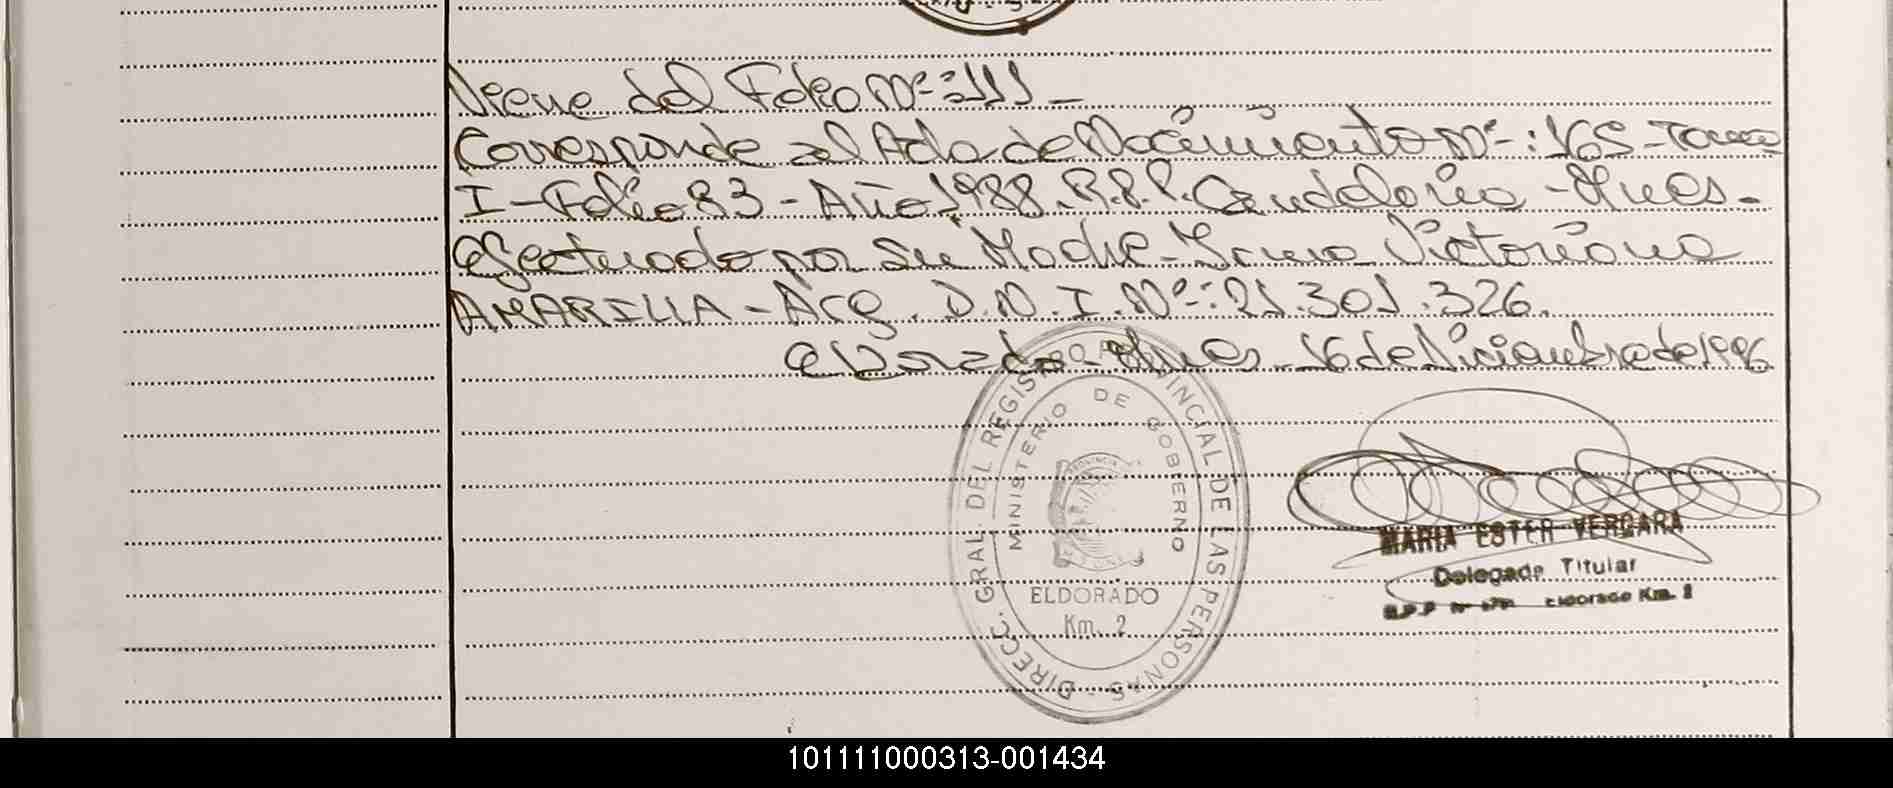 Viene del Folio Nº: 111 -
Corresponde al Acta de Nacimiento Nº-: 165 - Tomo
I - Folio 83 - Año 1988. R.P.P. Candelaria - Mnes. -
efectuado por su Madre - Irma Victoriana
AMARILLA - Acq. D.N.I. Nº-: 21.301.326.
Eldorado - Mnes - 16 de Diciembre de 1996
DIRECC. GRAL. DEL REGISTRO PROVINCIAL DE LAS PERSONAS -
MINISTERIO DE GOBIERNO
PROVINCIA
ELDORADO
Km. 2
MARIA ESTER VERGARA
Delegada Titular
R.P.P Nº Eldorado Km. 2
101111000313-001434